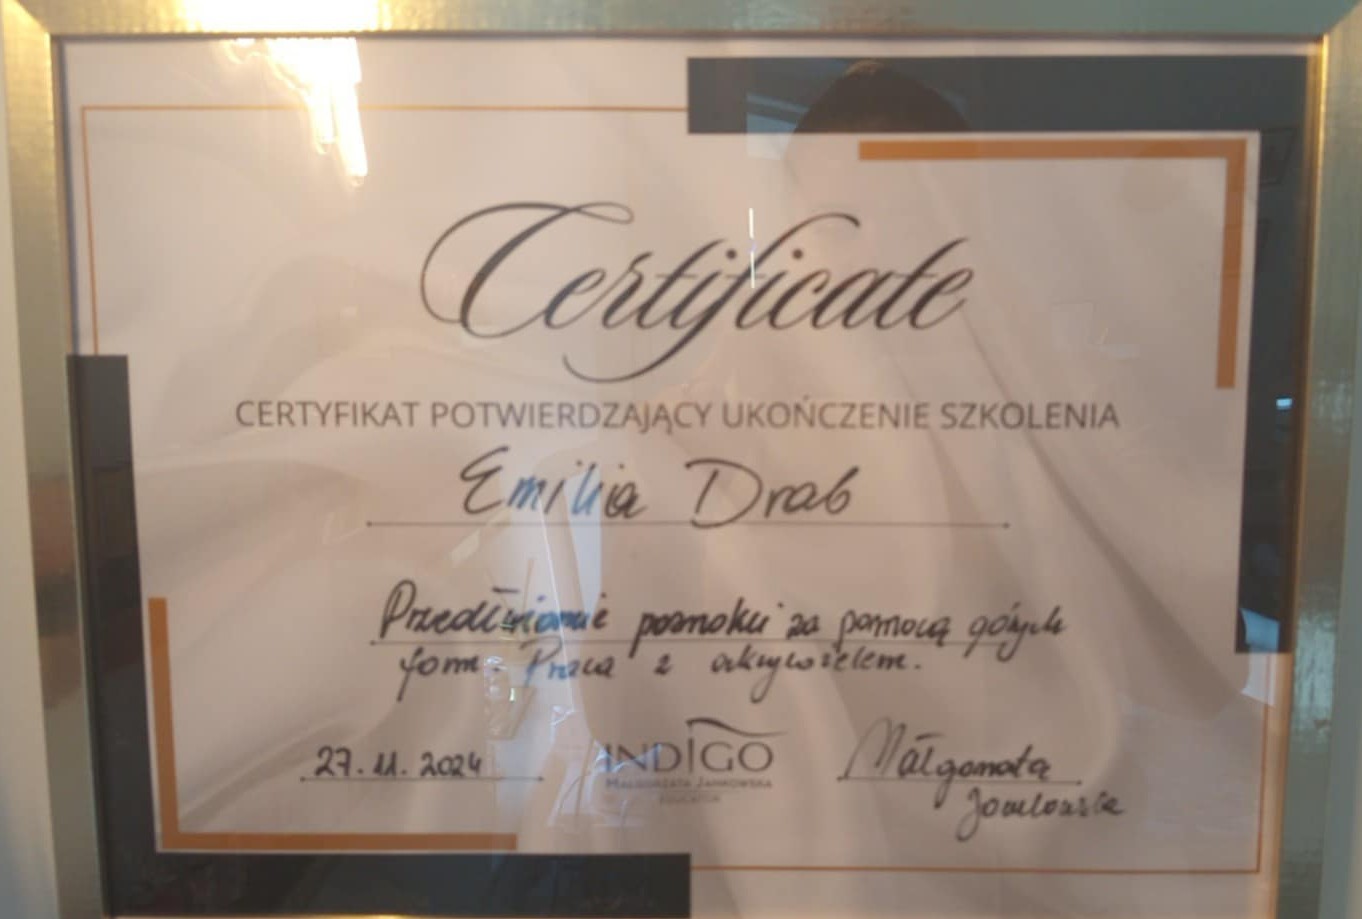 Certificate
CERTYFIKAT POTWIERDZAJĄCY UKOŃCZENIE SZKOLENIA
Emilia Drab
Przedłużanie paznokci za pomocą górnych
form. Praca z akrylożelem.
27.11.2024
INDIGO
MAŁGORZATA JANKOWSKA
EDUCATOR
Małgorzata
Jankowska